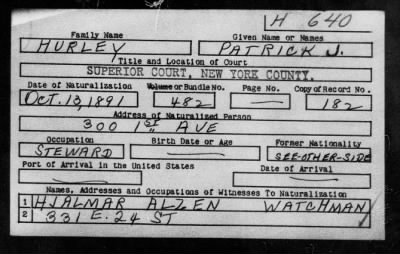 H 640
Family Name Given Name or Names
HURLEY PATRICK J.
Title and Location of Court
SUPERIOR COURT, NEW YORK COUNTY.
Date of Naturalization Volume or Bundle No. Page No. Copy of Record No.
OCT. 13, 1891 482 — 182
Address of Naturalized Person
300 1ST AVE
Occupation Birth Date or Age Former Nationality
STEWARD SEE-OTHER-SIDE
Port of Arrival in the United States Date of Arrival
Names, Addresses and Occupations of Witnesses To Naturalization
1 HJALMAR ALZEN WATCHMAN
2 331 E. 24 ST